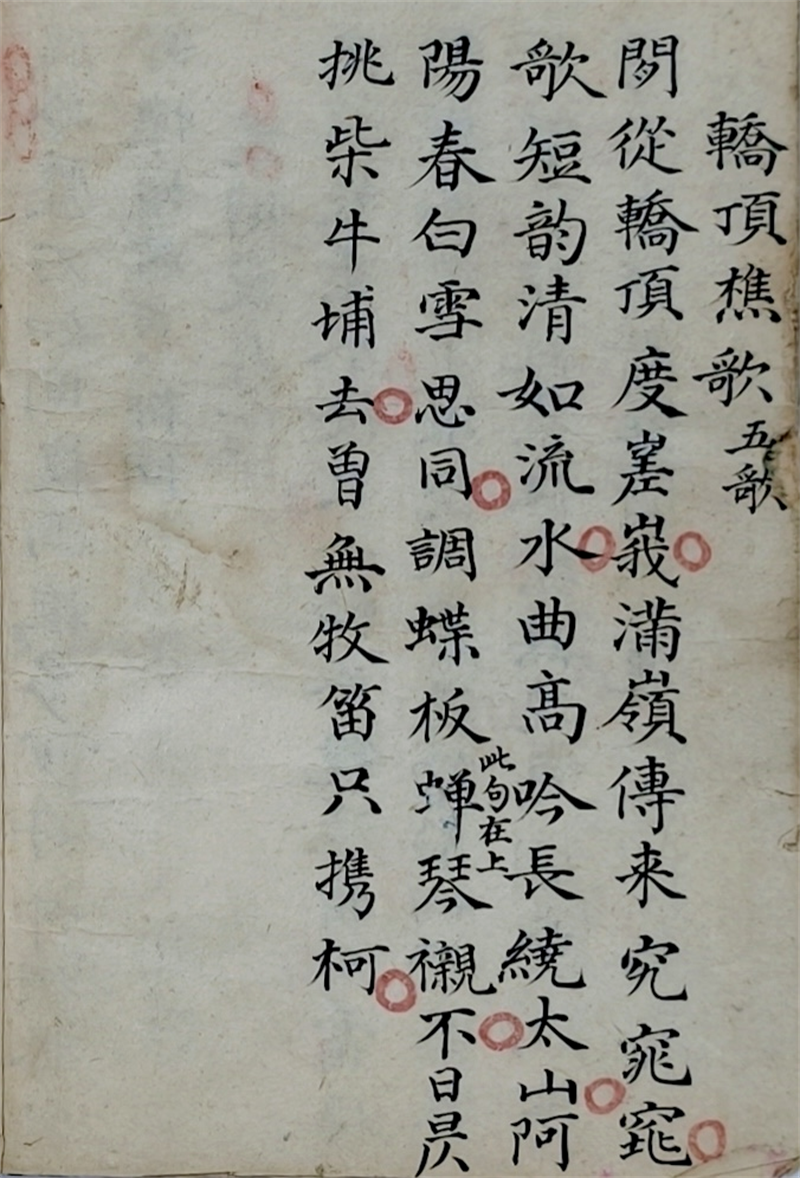 轎頂樵歌 五歌
閒從轎頂度嵳峩滿嶺傳来究窕
歌短韵清如流水曲高吟長繞太山阿
此句在上
陽春白雪思同調蝶板蝉琴襯不日昃
挑柴牛埔去曾無牧笛只携柯